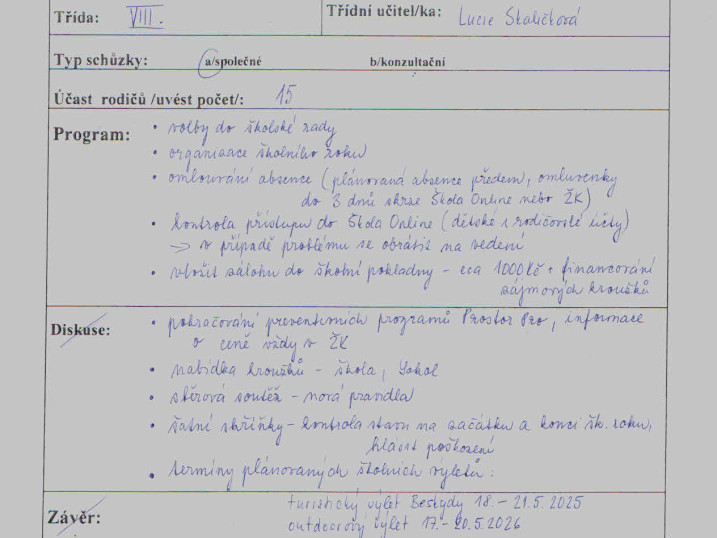 Třída: VIII. Třídní učitel/ka: Lucie Skaličková
Typ schůzky: a/společné b/konzultační
Účast rodičů /uvést počet/: 15
Program: • volby do školské rady
• organizace školního roku
• omlouvání absence (plánovaná absence předem, omluvenky
do 3 dnů skrze Škola Online nebo ŽK)
• kontrola přístupu do Škola Online (dětské i rodičovské účty)
→ v případě problému se obrátit na vedení
• vložit zálohu do školní pokladny - cca 1000 Kč + financování
zájmových kroužků
Diskuse: • pokračování preventivních programů Prostor Pro, informace
o ceně vždy v ŽK
• nabídka kroužků - škola, Sokol
• sběrová soutěž - nová pravidla
• šatní skříňky - kontrola stavu na začátku a konci šk. roku,
hlásit poškození
• termíny plánovaných školních výletů:
Závěr: turistický výlet Beskydy 18. - 21.5.2025
outdoorový výlet 17. - 20.5.2026